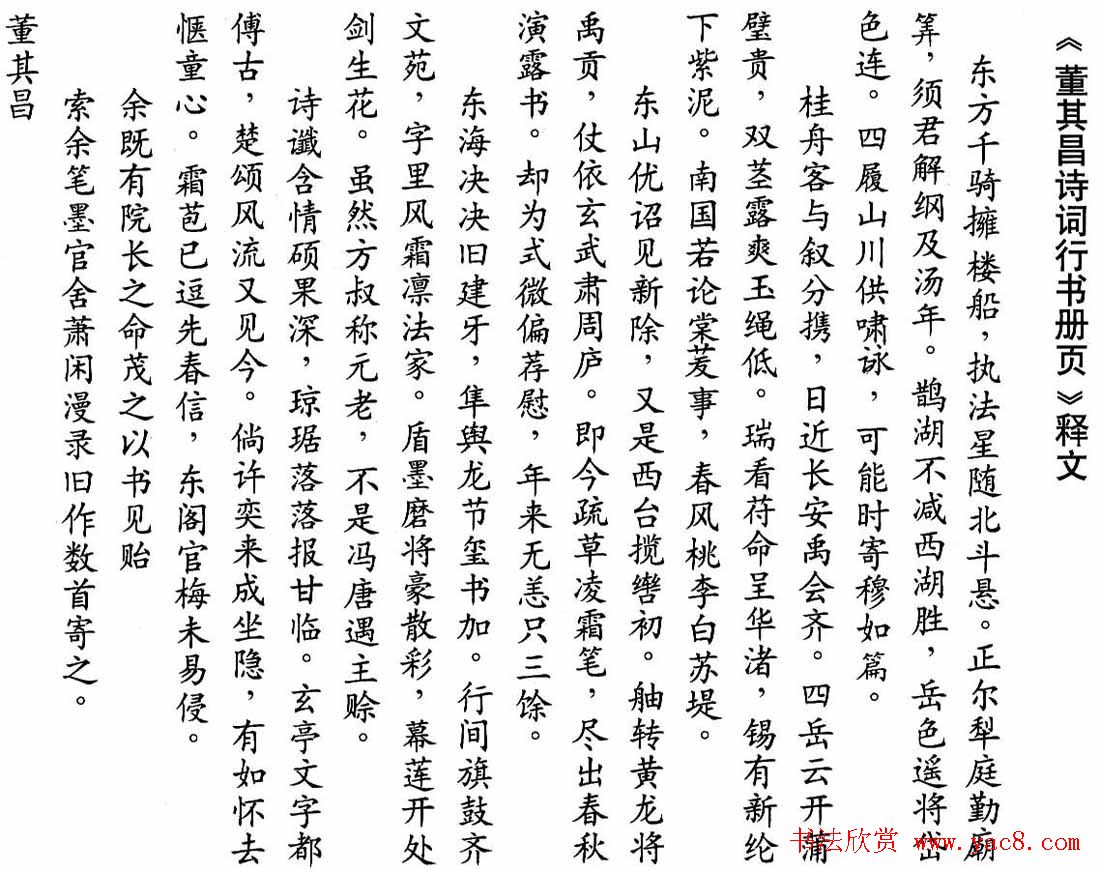 《董其昌诗词行书册页》释文
东方千骑擁楼船，执法星随北斗悬。正尔犁庭勤廟
筭，须君解纲及汤年。鹊湖不减西湖胜，岳色遥将岱
色连。四履山川供啸詠，可能时寄穆如篇。
桂舟客与叙分携，日近长安禹会齐。四岳云开蒲
璧贵，双茎露爽玉绳低。瑞看苻命呈华渚，锡有新纶
下紫泥。南国若论棠茇事，春风桃李白苏堤。
东山优诏见新除，又是西台揽辔初。舳转黄龙将
禹贡，仗依玄武肃周庐。即今疏草凌霜笔，尽出春秋
演露书。却为式微偏荐慰，年来无恙只三馀。
东海决决旧建牙，隼舆龙节玺书加。行间旗鼓齐
文苑，字里风霜凛法家。盾墨磨将豪散彩，幕莲开处
剑生花。虽然方叔称元老，不是冯唐遇主赊。
诗谶含情硕果深，琼琚落落报甘临。玄亭文字都
傅古，楚颂风流又见今。倘许奕来成坐隐，有如怀去
惬童心。霜苞已逗先春信，东阁官梅未易侵。
余既有院长之命茂之以书见贻
索余笔墨官舍萧闲漫录旧作数首寄之。
董其昌
书法欣赏 www.yac8.com